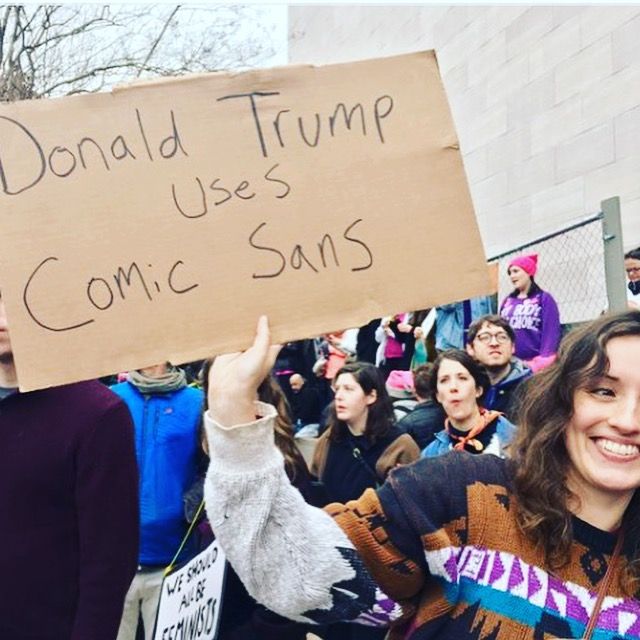 Donald Trump
uses
Comic Sans
MY BODY
MY CHOICE
WE SHOULD
ALL BE
FEMINISTS